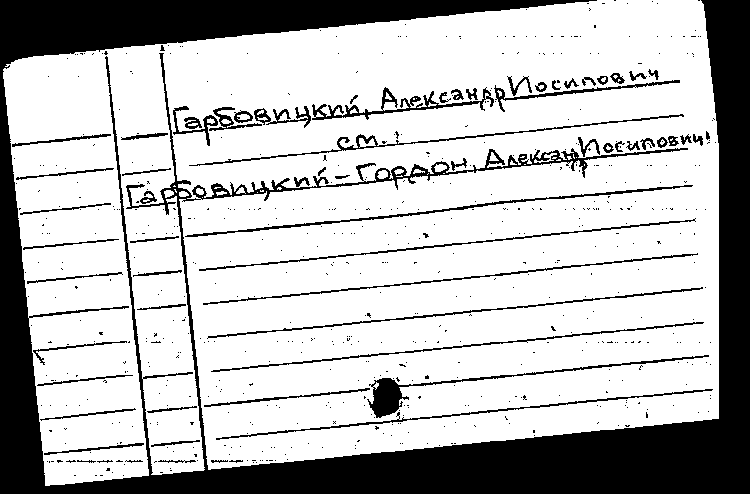 Гарбовицкий, Александр Иосипович
см.
Гарбовицкий – Гордон, Александр Иосипович